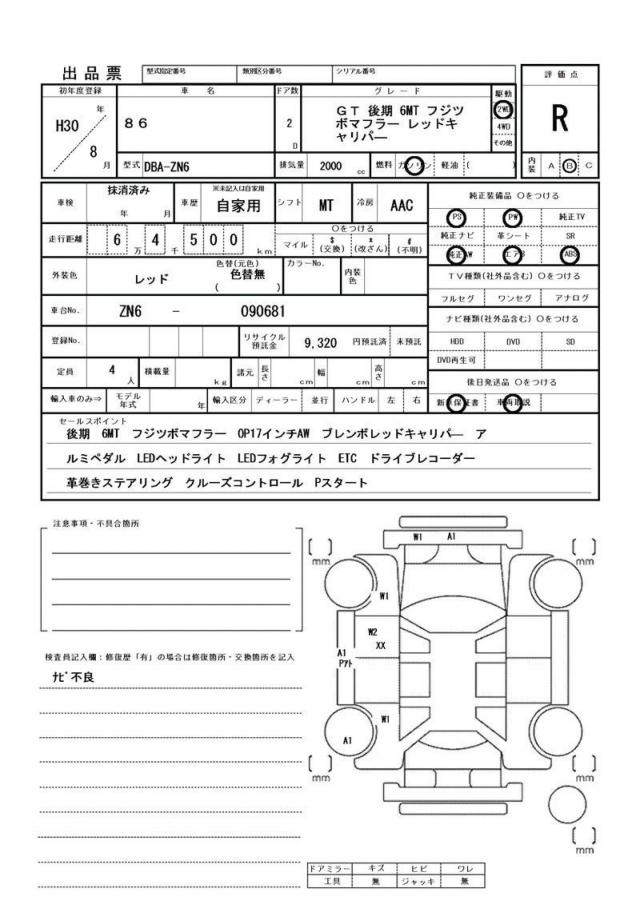 出品票
型式指定番号
類別区分番号
シリアル番号
評価点
R
初年度登録
車名
ドア数
グレード
駆動
H30
年
8
月
86
2
D
GT 後期 6MT フジツ
ボマフラー レッドキ
ャリパー
2WD
4WD
その他
型式 DBA-ZN6
排気量 2000 cc
燃料 ガソリン 軽油 ( )
内装 A B C
車検
抹消済み
年 月
車歴
※未記入は自家用
自家用
シフト MT
冷房 AAC
純正装備品 〇をつける
PS PW 純正TV
純正ナビ 革シート SR
純正AW エアB ABS
走行距離 6 万 4 千 5 0 0 km
〇をつける
マイル
$
(交換)
*
(改ざん)
#
(不明)
外装色 レッド
色替(元色)
色替無
( )
カラーNo.
内装色
TV種類(社外品含む) 〇をつける
フルセグ ワンセグ アナログ
車台No. ZN6 - 090681
ナビ種類(社外品含む) 〇をつける
HDD DVD SD
DVD再生可
登録No.
リサイクル預託金 9,320 円預託済 未預託
定員 4 人
積載量 kg
諸元 長さ cm 幅 cm 高さ cm
後日発送品 〇をつける
新車保証書 車両取説
輸入車のみ⇒ モデル年式 年 輸入区分 ディーラー 並行 ハンドル 左 右
セールスポイント
後期 6MT フジツボマフラー OP17インチAW ブレンボレッドキャリパー ア
ルミペダル LEDヘッドライト LEDフォグライト ETC ドライブレコーダー
革巻きステアリング クルーズコントロール Pスタート
注意事項・不具合箇所
検査員記入欄:修復歴「有」の場合は修復箇所・交換箇所を記入
ﾅﾋﾞ不良
W1 A1
mm
mm
W1
W2
XX
A1
Pｱﾄ
W1
A1
mm
mm
mm
ドアミラー キズ ヒビ ワレ
工具 無 ジャッキ 無